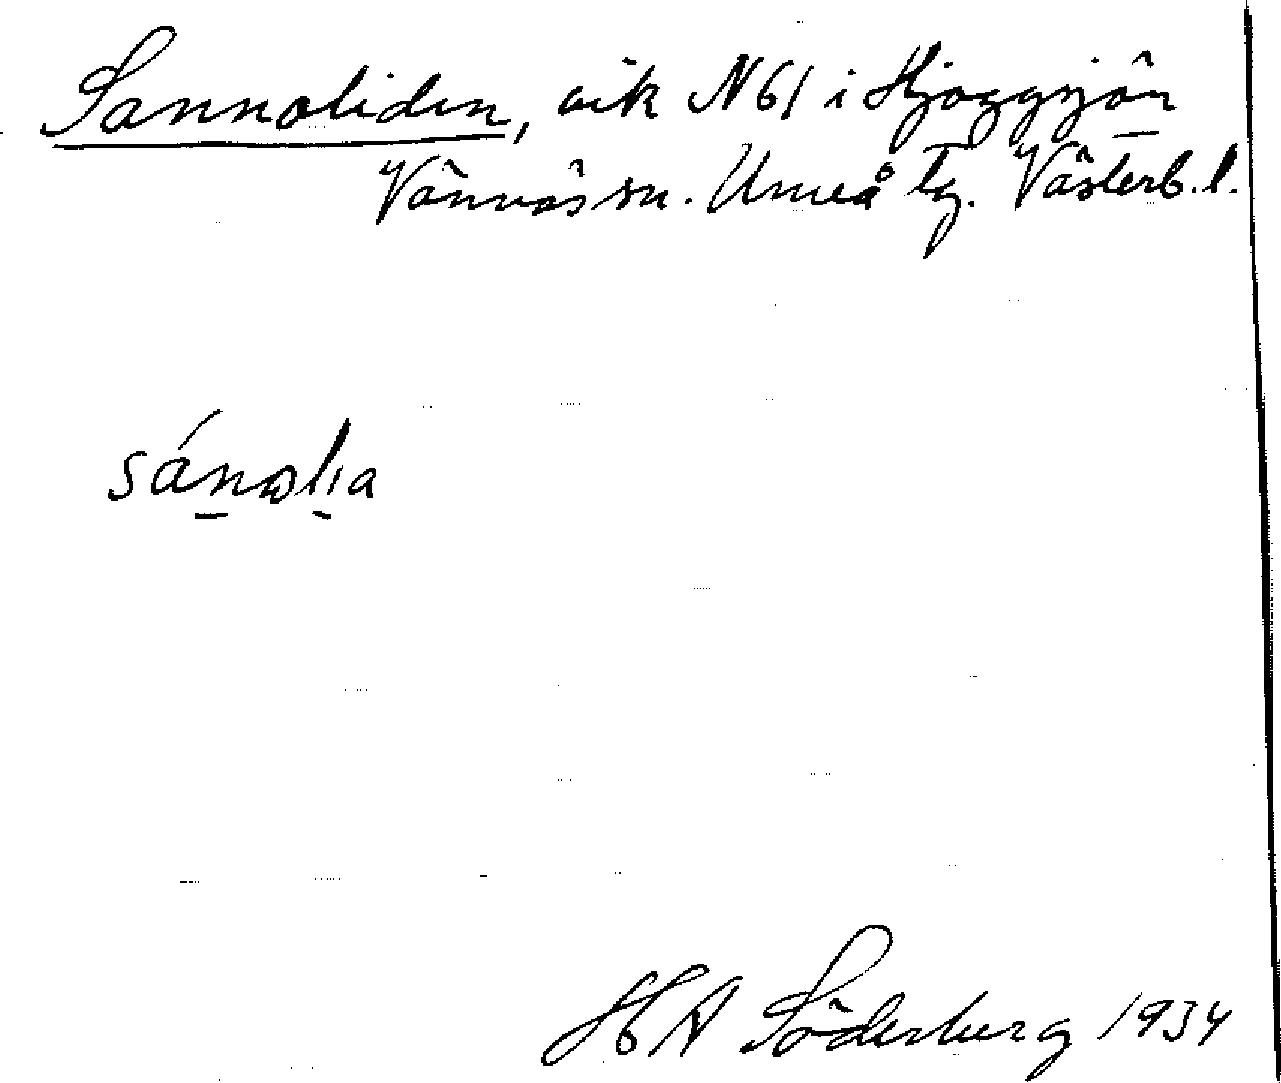 Sannoliden, vik N61 i Hjoggsjön
Vännäs sn. Umeå tg. Västerb. l.
HA Söderberg 1934